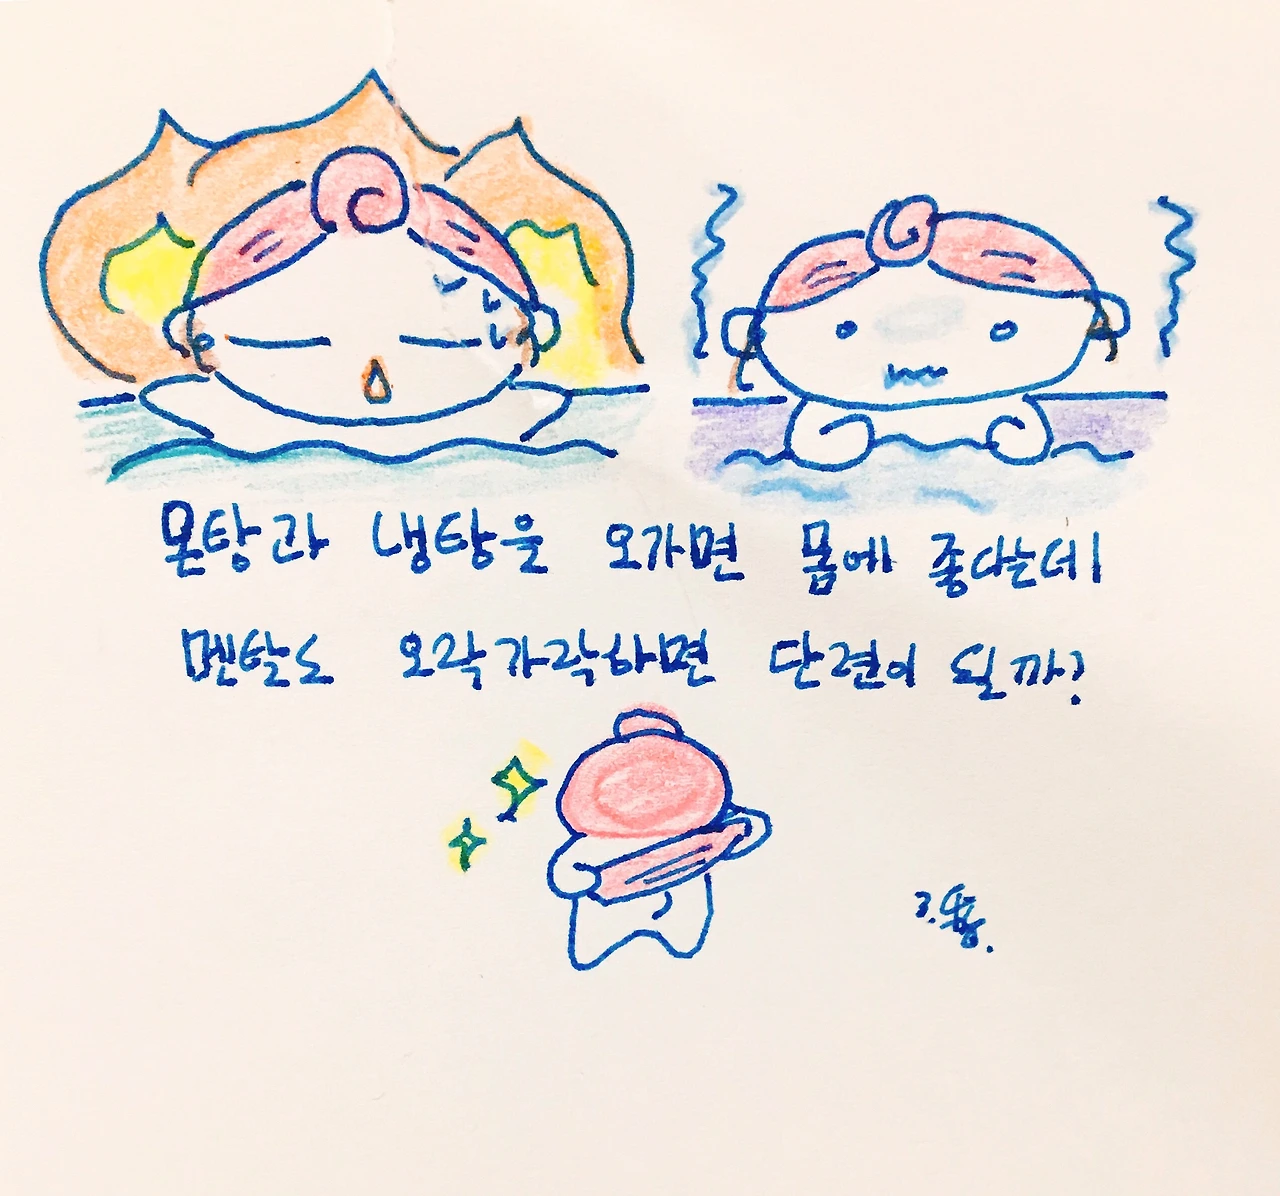 온탕과 냉탕을 오가면 몸에 좋다는데
멘탈도 오락가락하면 단련이 될까?